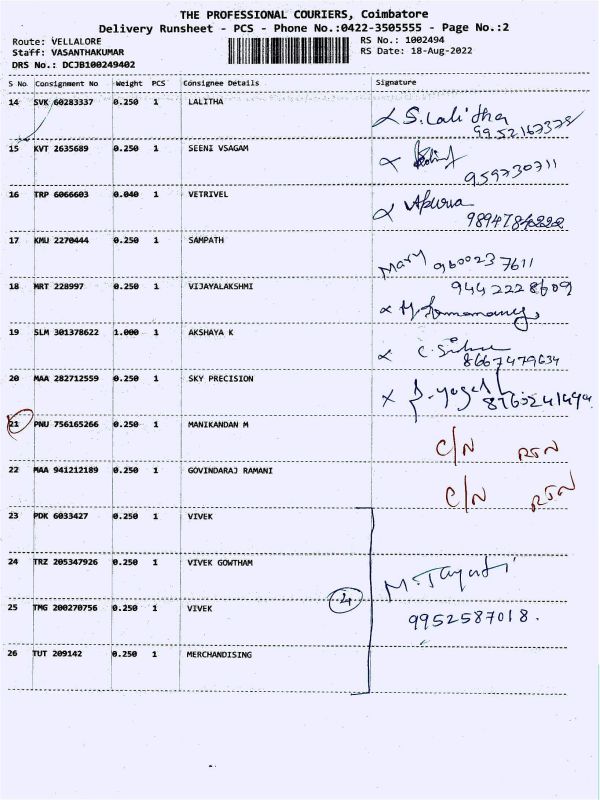 THE PROFESSIONAL COURIERS, Coimbatore
Delivery Runsheet - PCS - Phone No.:0422-3505555 - Page No.:2
Route: VELLALORE RS No.: 1002494
Staff: VASANTHAKUMAR RS Date: 18-Aug-2022
DRS No.: DCJB100249402
S No. Consignment No Weight PCS Consignee Details Signature
14 SVK 60283337 0.250 1 LALITHA S. Lalitha
15 KVT 2635689 0.250 1 SEENI VSAGAM
959730711
16 TRP 6066603 0.040 1 VETRIVEL
17 KMU 2270444 0.250 1 SAMPATH Mary 9600237611
18 MRT 228997 0.250 1 VIJAYALAKSHMI 9442228609
19 SLM 301378622 1.000 1 AKSHAYA K
8667479634
20 MAA 282712559 0.250 1 SKY PRECISION
21 PNU 756165266 0.250 1 MANIKANDAN M C/N RTN
22 MAA 941212189 0.250 1 GOVINDARAJ RAMANI C/N RTN
23 PDK 6033427 0.250 1 VIVEK
24 TRZ 205347926 0.250 1 VIVEK GOWTHAM
25 TMG 200270756 0.250 1 VIVEK 4 9952587018.
26 TUT 209142 0.250 1 MERCHANDISING